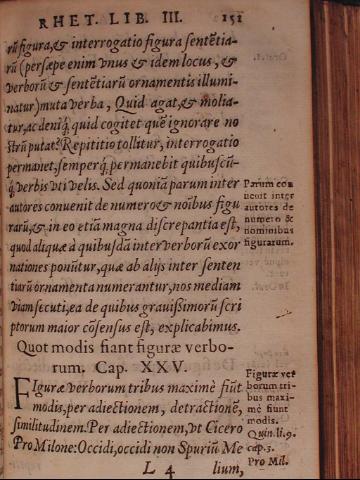 RHET. LIB. III. 151
rũ figura, & interrogatio figura sentẽtia-
rũ (persæpe enim vnus & idem locus, &
verborũ & sentẽtiarũ ornamentis illumi-
natur) muta verba, Quid agat, & molia-
tur, ac deniq́; quid cogitet quẽ ignorare no
strũ putat? Repititio tollitur, interrogatio
permanet, semperq́; permanebit quibuscũ-
q́; verbis vti velis. Sed quoniã parum inter
autores conuenit de numero & noĩbus figu
rarũ, & in eo etiã magna discrepantia est,
quod aliquæ à quibusdã inter verborũ exor
nationes ponũtur, quæ ab alijs inter senten
tiarũ ornamenta numerantur, nos mediam
viam secuti, ea de quibus grauissimorũ scri
ptorum maior cõsensus est, explicabimus.
Parum con
ueuit inter
autores de
numero &
nominibus
figurarum.
Quot modis fiant figuræ verbo-
rum. Cap. XXV.
FIguræ verborum tribus maximè fiũt
modis, per adiectionem, detractionẽ,
similitudinem. Per adiectionem, vt Cicero
Pro Milone: Occidi, occidi non Spuriũ Me
Figuræ ver
borum tri-
bus maxi-
mè fiunt
modis.
Quin. li. 9.
cap. 3.
Pro Mil.
L 4 lium,